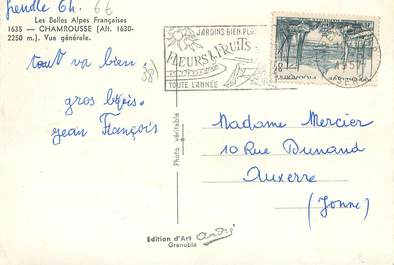 grendle 6h. 66
Les Belles Alpes Françaises
1635 - CHAMROUSSE (Alt. 1630-
2250 m.). Vue générale.
tout va bien.
gros
jean François
JARDINS BIEN
FLEURS & FRUITS
TOUTE L'ANNÉE
38
Photo véritable
Madame Mercier
10 Rue Dunand
Auxerre
(Yonne)
Edition d'Art
Grenoble
André